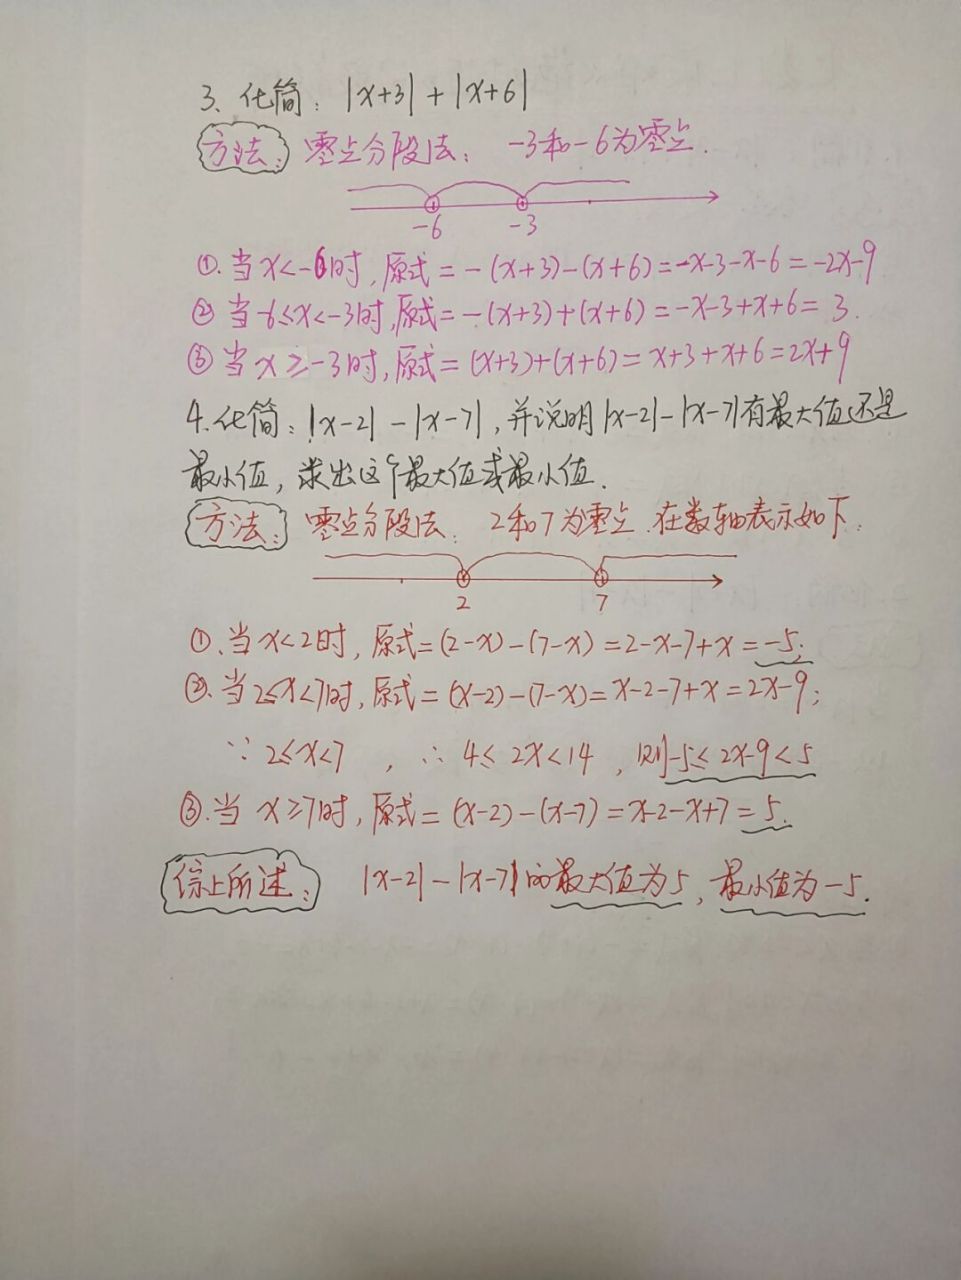 3、化简：|x+3|+|x+6|
方法：零点分段法： -3和-6为零点.
-6 -3
①.当x<-6时,原式=-(x+3)-(x+6)=-x-3-x-6=-2x-9
②当-6≤x<-3时,原式=-(x+3)+(x+6)=-x-3+x+6=3.
③当x≥-3时,原式=(x+3)+(x+6)=x+3+x+6=2x+9
4.化简：|x-2|-|x-7|,并说明|x-2|-|x-7|有最大值还是
最小值,求出这个最大值或最小值.
方法： 零点分段法： 2和7为零点.在数轴表示如下：
2 7
①.当x<2时,原式=(2-x)-(7-x)=2-x-7+x=-5;
②.当2≤x<7时,原式=(x-2)-(7-x)=x-2-7+x=2x-9;
∵2≤x<7,∴4≤2x<14,则-5≤2x-9<5
③.当x≥7时,原式=(x-2)-(x-7)=x-2-x+7=5.
综上所述： |x-2|-|x-7|的最大值为5,最小值为-5.